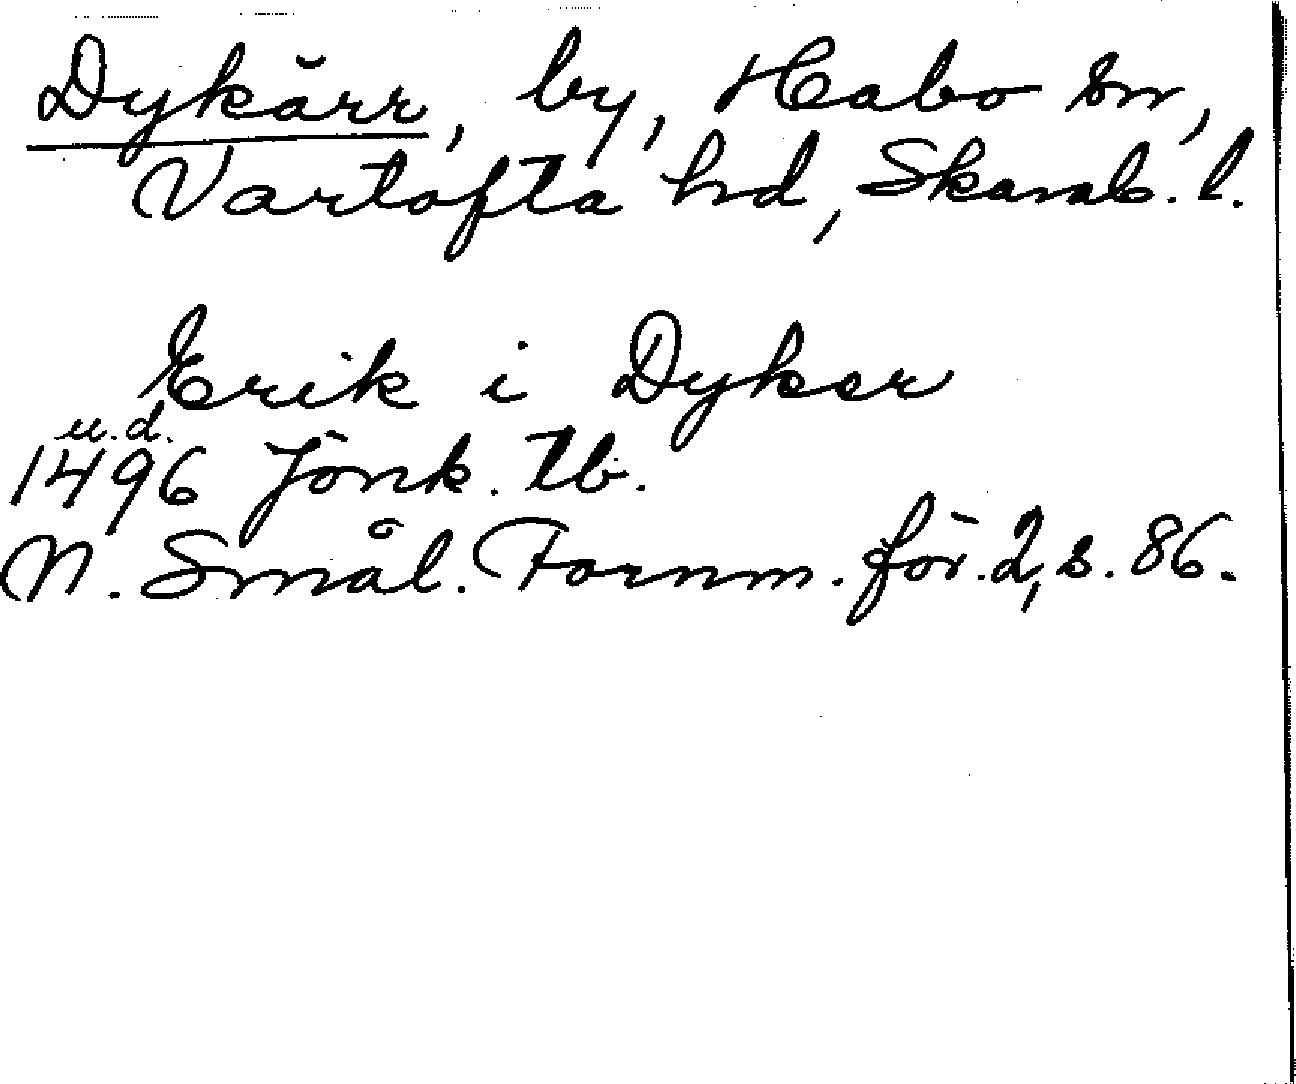 Dykärr, by, Habo sn,
Vartofta hd, Skarab. l.
Erik i Dyker
u.d.
1496 Jönk. tb.
N. Smål. Fornm. för. 2, s. 86.